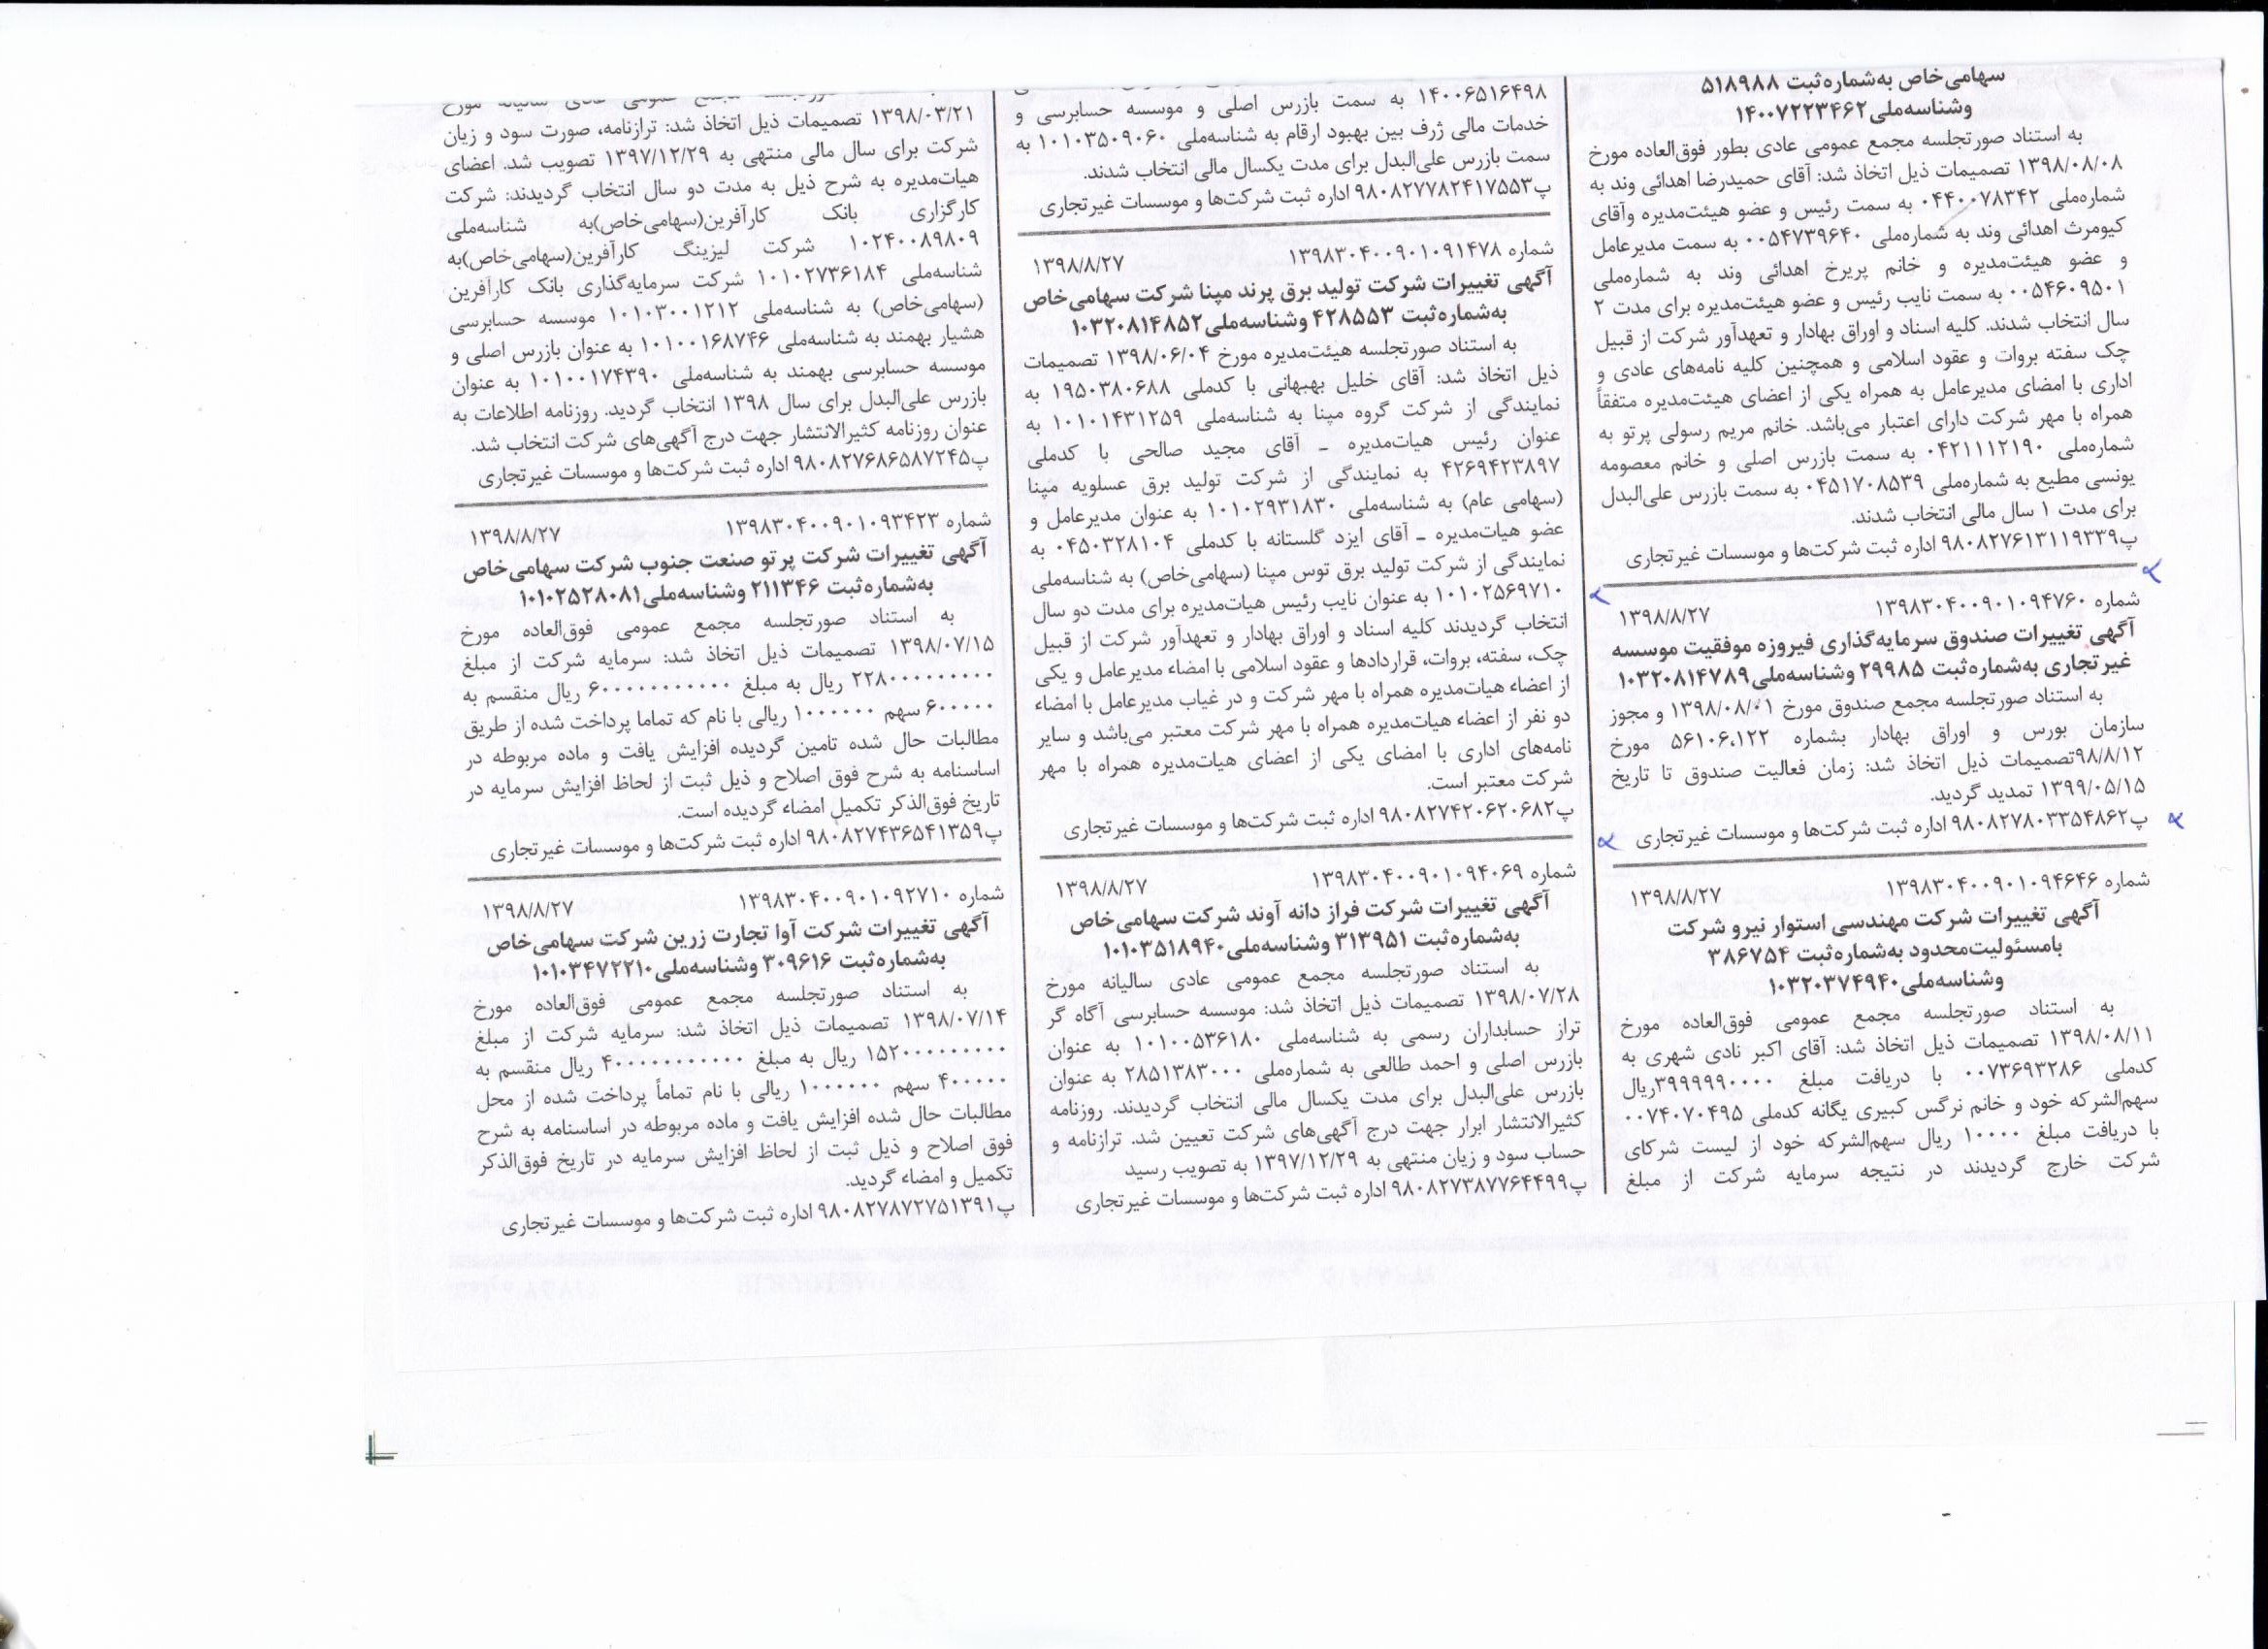 سهامی‌خاص به‌شماره‌ثبت ۵۱۸۹۸۸
وشناسه‌ملی۱۴۰۰۷۲۲۳۴۶۲
به استناد صورتجلسه مجمع عمومی عادی بطور فوق‌العاده مورخ
۱۳۹۸/۰۸/۰۸ تصمیمات ذیل اتخاذ شد: آقای حمیدرضا اهدائی وند به
شماره‌ملی ۰۴۴۰۰۷۸۳۴۲ به سمت رئیس و عضو هیئت‌مدیره وآقای
کیومرث اهدائی وند به شماره‌ملی ۰۰۵۴۷۳۹۶۴۰ به سمت مدیرعامل
و عضو هیئت‌مدیره و خانم پریرخ اهدائی وند به شماره‌ملی
۰۰۵۴۶۰۹۵۰۱ به سمت نایب رئیس و عضو هیئت‌مدیره برای مدت ۲
سال انتخاب شدند. کلیه اسناد و اوراق بهادار و تعهدآور شرکت از قبیل
چک سفته بروات و عقود اسلامی و همچنین کلیه نامه‌های عادی و
اداری با امضای مدیرعامل به همراه یکی از اعضای هیئت‌مدیره متفقاً
همراه با مهر شرکت دارای اعتبار می‌باشد. خانم مریم رسولی پرتو به
شماره‌ملی ۰۴۲۱۱۱۲۱۹۰ به سمت بازرس اصلی و خانم معصومه
یونسی مطیع به شماره‌ملی ۰۴۵۱۷۰۸۵۳۹ به سمت بازرس علی‌البدل
برای مدت ۱ سال مالی انتخاب شدند.
پ۹۸۰۸۲۷۶۱۳۱۱۹۳۳۹ اداره ثبت شرکت‌ها و موسسات غیرتجاری
شماره ۱۳۹۸۳۰۴۰۰۹۰۱۰۹۴۷۶۰ ۱۳۹۸/۸/۲۷
آگهی تغییرات صندوق سرمایه‌گذاری فیروزه موفقیت موسسه
غیرتجاری به‌شماره‌ثبت ۲۹۹۸۵ وشناسه‌ملی۱۰۳۲۰۸۱۴۷۸۹
به استناد صورتجلسه مجمع صندوق مورخ ۱۳۹۸/۰۸/۰۱ و مجوز
سازمان بورس و اوراق بهادار بشماره ۵۶۱۰۶،۱۲۲ مورخ
۹۸/۸/۱۲تصمیمات ذیل اتخاذ شد: زمان فعالیت صندوق تا تاریخ
۱۳۹۹/۰۵/۱۵ تمدید گردید.
پ۹۸۰۸۲۷۸۰۳۳۵۴۸۶۲ اداره ثبت شرکت‌ها و موسسات غیرتجاری
شماره ۱۳۹۸۳۰۴۰۰۹۰۱۰۹۴۶۴۶ ۱۳۹۸/۸/۲۷
آگهی تغییرات شرکت مهندسی استوار نیرو شرکت
بامسئولیت‌محدود به‌شماره‌ثبت ۳۸۶۷۵۴
وشناسه‌ملی۱۰۳۲۰۳۷۴۹۴۰
به استناد صورتجلسه مجمع عمومی فوق‌العاده مورخ
۱۳۹۸/۰۸/۱۱ تصمیمات ذیل اتخاذ شد: آقای اکبر نادی شهری به
کدملی ۰۰۷۳۶۹۳۲۸۶ با دریافت مبلغ ۳۹۹۹۹۹۰۰۰۰ریال
سهم‌الشرکه خود و خانم نرگس کبیری یگانه کدملی ۰۰۷۴۰۷۰۴۹۵
با دریافت مبلغ ۱۰۰۰۰ ریال سهم‌الشرکه خود از لیست شرکای
شرکت خارج گردیدند در نتیجه سرمایه شرکت از مبلغ
۱۴۰۰۶۵۱۶۴۹۸ به سمت بازرس اصلی و موسسه حسابرسی و
خدمات مالی ژرف بین بهبود ارقام به شناسه‌ملی ۱۰۱۰۳۵۰۹۰۶۰ به
سمت بازرس علی‌البدل برای مدت یکسال مالی انتخاب شدند.
پ۹۸۰۸۲۷۷۸۲۴۱۷۵۵۳ اداره ثبت شرکت‌ها و موسسات غیرتجاری
شماره ۱۳۹۸۳۰۴۰۰۹۰۱۰۹۱۴۷۸ ۱۳۹۸/۸/۲۷
آگهی تغییرات شرکت تولید برق پرند مپنا شرکت سهامی‌خاص
به‌شماره‌ثبت ۴۲۸۵۵۳ وشناسه‌ملی۱۰۳۲۰۸۱۴۸۵۲
به استناد صورتجلسه هیئت‌مدیره مورخ ۱۳۹۸/۰۶/۰۴ تصمیمات
ذیل اتخاذ شد: آقای خلیل بهبهانی با کدملی ۱۹۵۰۳۸۰۶۸۸ به
نمایندگی از شرکت گروه مپنا به شناسه‌ملی ۱۰۱۰۱۴۳۱۲۵۹ به
عنوان رئیس هیات‌مدیره ـ آقای مجید صالحی با کدملی
۴۲۶۹۴۲۳۸۹۷ به نمایندگی از شرکت تولید برق عسلویه مپنا
(سهامی عام) به شناسه‌ملی ۱۰۱۰۲۹۳۱۸۳۰ به عنوان مدیرعامل و
عضو هیات‌مدیره ـ آقای ایزد گلستانه با کدملی ۰۴۵۰۳۲۸۱۰۴ به
نمایندگی از شرکت تولید برق توس مپنا (سهامی‌خاص) به شناسه‌ملی
۱۰۱۰۲۵۶۹۷۱۰ به عنوان نایب رئیس هیات‌مدیره برای مدت دو سال
انتخاب گردیدند کلیه اسناد و اوراق بهادار و تعهدآور شرکت از قبیل
چک، سفته، بروات، قراردادها و عقود اسلامی با امضاء مدیرعامل و یکی
از اعضاء هیات‌مدیره همراه با مهر شرکت و در غیاب مدیرعامل با امضاء
دو نفر از اعضاء هیات‌مدیره همراه با مهر شرکت معتبر می‌باشد و سایر
نامه‌های اداری با امضای یکی از اعضای هیات‌مدیره همراه با مهر
شرکت معتبر است.
پ۹۸۰۸۲۷۴۲۰۶۲۰۶۸۲ اداره ثبت شرکت‌ها و موسسات غیرتجاری
شماره ۱۳۹۸۳۰۴۰۰۹۰۱۰۹۴۰۶۹ ۱۳۹۸/۸/۲۷
آگهی تغییرات شرکت فراز دانه آوند شرکت سهامی‌خاص
به‌شماره‌ثبت ۳۱۳۹۵۱ وشناسه‌ملی۱۰۱۰۳۵۱۸۹۴۰
به استناد صورتجلسه مجمع عمومی عادی سالیانه مورخ
۱۳۹۸/۰۷/۲۸ تصمیمات ذیل اتخاذ شد: موسسه حسابرسی آگاه گر
تراز حسابداران رسمی به شناسه‌ملی ۱۰۱۰۰۵۳۶۱۸۰ به عنوان
بازرس اصلی و احمد طالعی به شماره‌ملی ۲۸۵۱۳۸۳۰۰۰ به عنوان
بازرس علی‌البدل برای مدت یکسال مالی انتخاب گردیدند. روزنامه
کثیرالانتشار ابرار جهت درج آگهی‌های شرکت تعیین شد. ترازنامه و
حساب سود و زیان منتهی به ۱۳۹۷/۱۲/۲۹ به تصویب رسید
پ۹۸۰۸۲۷۳۸۷۷۶۴۴۹۹ اداره ثبت شرکت‌ها و موسسات غیرتجاری
۱۳۹۸/۰۳/۲۱ تصمیمات ذیل اتخاذ شد: ترازنامه، صورت سود و زیان
شرکت برای سال مالی منتهی به ۱۳۹۷/۱۲/۲۹ تصویب شد. اعضای
هیات‌مدیره به شرح ذیل به مدت دو سال انتخاب گردیدند: شرکت
کارگزاری بانک کارآفرین(سهامی‌خاص)به شناسه‌ملی
۱۰۲۴۰۰۸۹۸۰۹ شرکت لیزینگ کارآفرین(سهامی‌خاص)به
شناسه‌ملی ۱۰۱۰۲۷۳۶۱۸۴ شرکت سرمایه‌گذاری بانک کارآفرین
(سهامی‌خاص) به شناسه‌ملی ۱۰۱۰۳۰۰۱۲۱۲ موسسه حسابرسی
هشیار بهمند به شناسه‌ملی ۱۰۱۰۰۱۶۸۷۴۶ به عنوان بازرس اصلی و
موسسه حسابرسی بهمند به شناسه‌ملی ۱۰۱۰۰۱۷۴۳۹۰ به عنوان
بازرس علی‌البدل برای سال ۱۳۹۸ انتخاب گردید. روزنامه اطلاعات به
عنوان روزنامه کثیرالانتشار جهت درج آگهی‌های شرکت انتخاب شد.
پ۹۸۰۸۲۷۶۸۶۵۸۷۲۴۵ اداره ثبت شرکت‌ها و موسسات غیرتجاری
شماره ۱۳۹۸۳۰۴۰۰۹۰۱۰۹۳۴۲۳ ۱۳۹۸/۸/۲۷
آگهی تغییرات شرکت پرتو صنعت جنوب شرکت سهامی‌خاص
به‌شماره‌ثبت ۲۱۱۳۴۶ وشناسه‌ملی۱۰۱۰۲۵۲۸۰۸۱
به استناد صورتجلسه مجمع عمومی فوق‌العاده مورخ
۱۳۹۸/۰۷/۱۵ تصمیمات ذیل اتخاذ شد: سرمایه شرکت از مبلغ
۲۲۸۰۰۰۰۰۰۰۰۰ ریال به مبلغ ۶۰۰۰۰۰۰۰۰۰۰۰ ریال منقسم به
۶۰۰۰۰۰ سهم ۱۰۰۰۰۰۰ ریالی با نام که تماما پرداخت شده از طریق
مطالبات حال شده تامین گردیده افزایش یافت و ماده مربوطه در
اساسنامه به شرح فوق اصلاح و ذیل ثبت از لحاظ افزایش سرمایه در
تاریخ فوق‌الذکر تکمیل امضاء گردیده است.
پ۹۸۰۸۲۷۴۳۶۵۴۱۳۵۹ اداره ثبت شرکت‌ها و موسسات غیرتجاری
شماره ۱۳۹۸۳۰۴۰۰۹۰۱۰۹۲۷۱۰ ۱۳۹۸/۸/۲۷
آگهی تغییرات شرکت آوا تجارت زرین شرکت سهامی‌خاص
به‌شماره‌ثبت ۳۰۹۶۱۶ وشناسه‌ملی۱۰۱۰۳۴۷۲۲۱۰
به استناد صورتجلسه مجمع عمومی فوق‌العاده مورخ
۱۳۹۸/۰۷/۱۴ تصمیمات ذیل اتخاذ شد: سرمایه شرکت از مبلغ
۱۵۲۰۰۰۰۰۰۰۰۰ ریال به مبلغ ۴۰۰۰۰۰۰۰۰۰۰۰ ریال منقسم به
۴۰۰۰۰۰ سهم ۱۰۰۰۰۰۰ ریالی با نام تماماً پرداخت شده از محل
مطالبات حال شده افزایش یافت و ماده مربوطه در اساسنامه به شرح
فوق اصلاح و ذیل ثبت از لحاظ افزایش سرمایه در تاریخ فوق‌الذکر
تکمیل و امضاء گردید.
پ۹۸۰۸۲۷۸۷۲۷۵۱۳۹۱ اداره ثبت شرکت‌ها و موسسات غیرتجاری